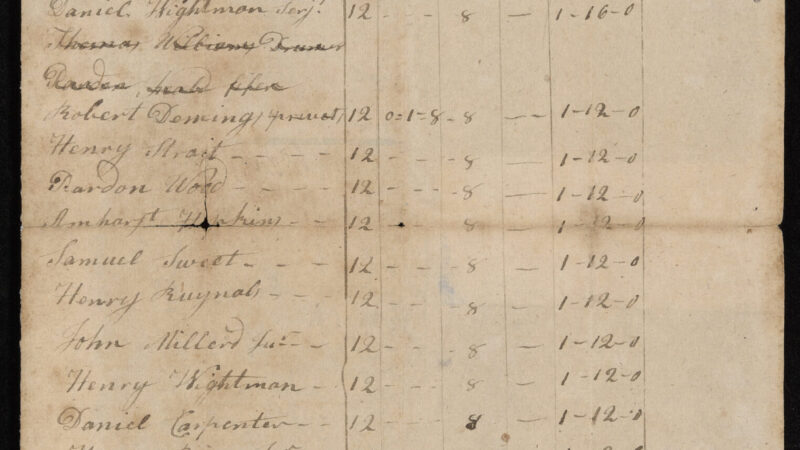 Daniel Wightman Serjt. 12 - - - 8 — 1-16-0
Thomas Williams Drumer
Rardon
Robert Deming, privat, 12 0=1=8 - 8 — 1-12-0
Henry Strait - - - - 12 - - - 8 — 1-12-0
Rardon Wood - - - - 12 - - - 8 — 1-12-0
Amharst Hopkins - - 12 - - 8 — 1-12-0
Samuel Sweet - - - 12 - - - 8 — 1-12-0
Henry Raynals - - 12 - - - 8 — 1-12-0
John Millerd Jur - - 12 - - - 8 — 1-12-0
Henry Wightman - 12 - - - 8 — 1-12-0
Daniel Carpenter - - 12 - - - 8 — 1-12-0